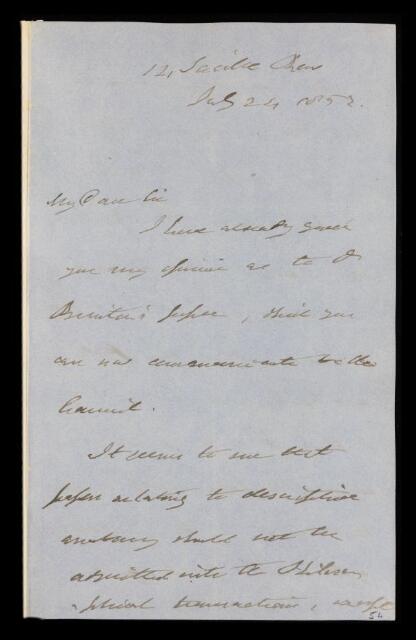 14, Saville Row
July 24 1852.
My Dear Sir
I have already given
you my opinion as to Dr
paper, which you
can now communicate to the
Council.
It seems to me that
papers relating to descriptive
anatomy should not be
admitted into the Philoso
phical transactions, except
54